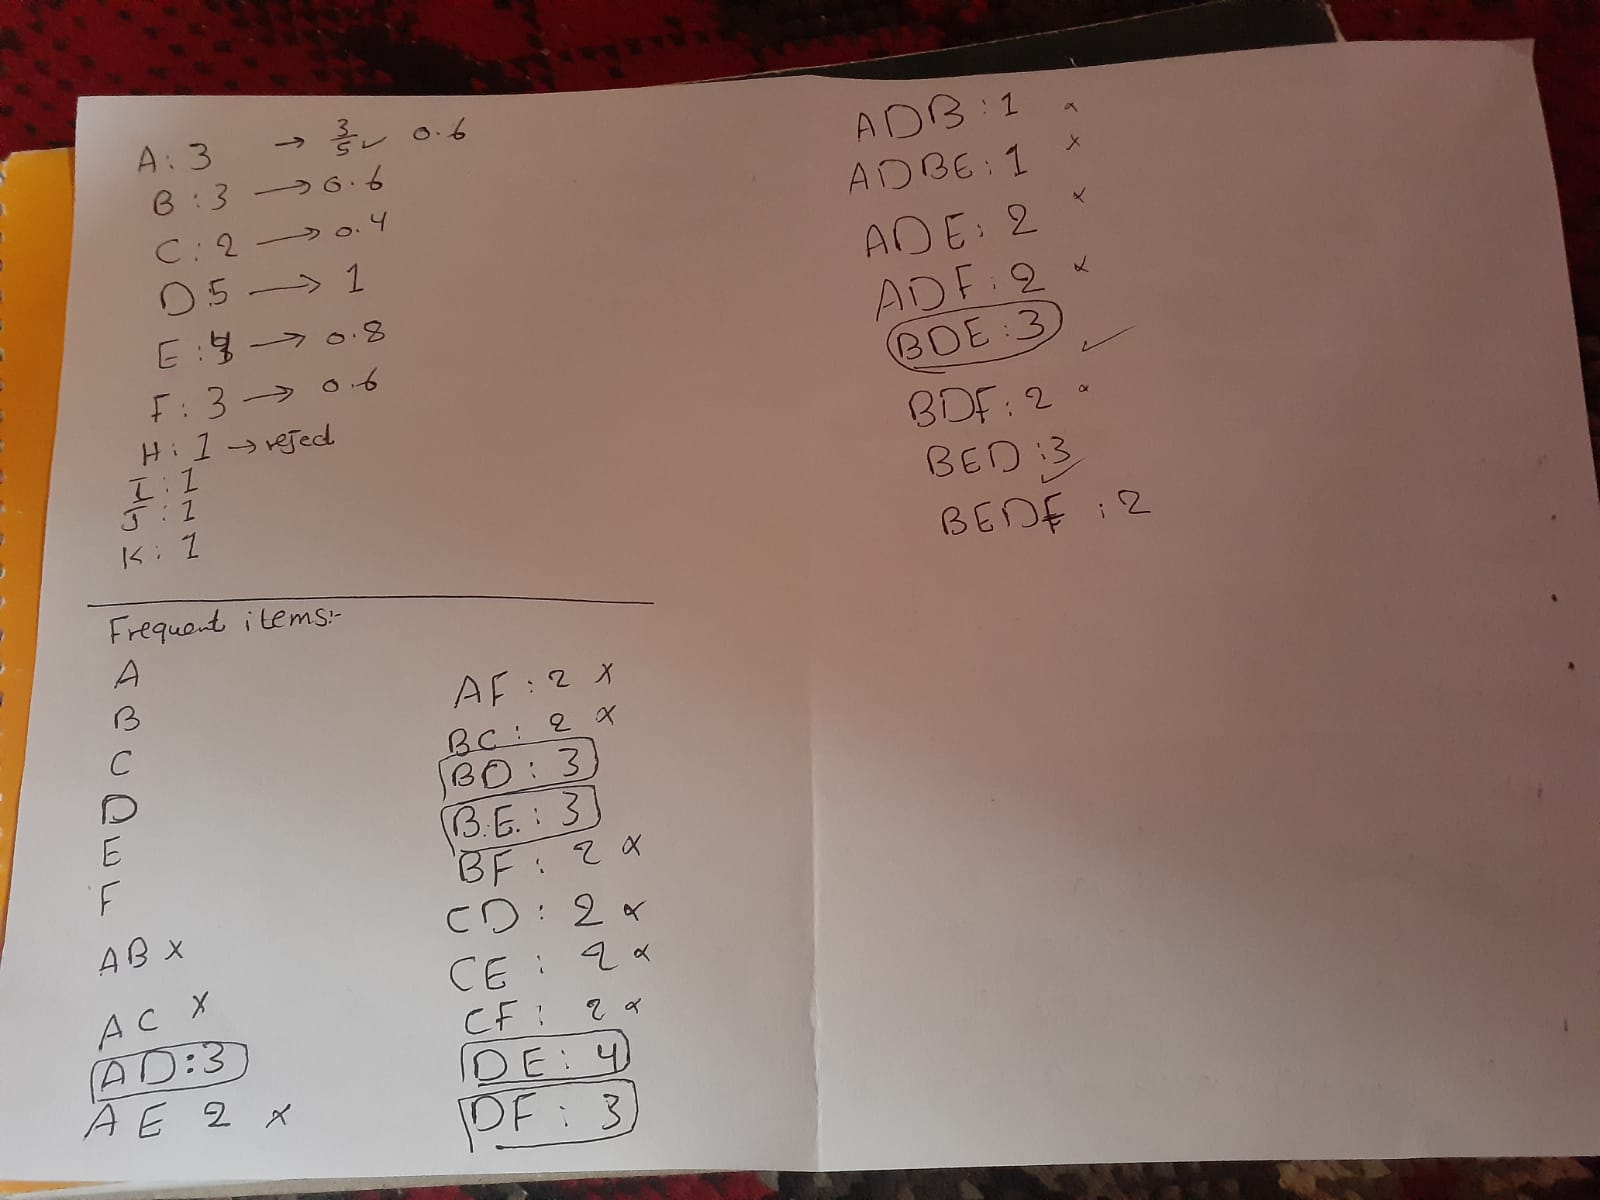 A: 3 → 3/5 ✓ 0.6
B: 3 → 0.6
C: 2 → 0.4
D 5 → 1
E: 4 → 0.8
F: 3 → 0.6
H: 1 → reject
I: 1
J: 1
K: 1
Frequent items:-
A
B
C
D
E
F
AB x
AC x
AD:3
AE 2 x
AF: 2 x
BC: 2 x
BD: 3
B.E.: 3
BF: 2 x
CD: 2 x
CE: 2 x
CF: 2 x
DE: 4
DF: 3
ADB: 1 x
ADBE: 1 x
ADE: 2 x
ADF: 2 x
BDE: 3 ✓
BDF: 2 x
BED :3 ✓
BEDF : 2